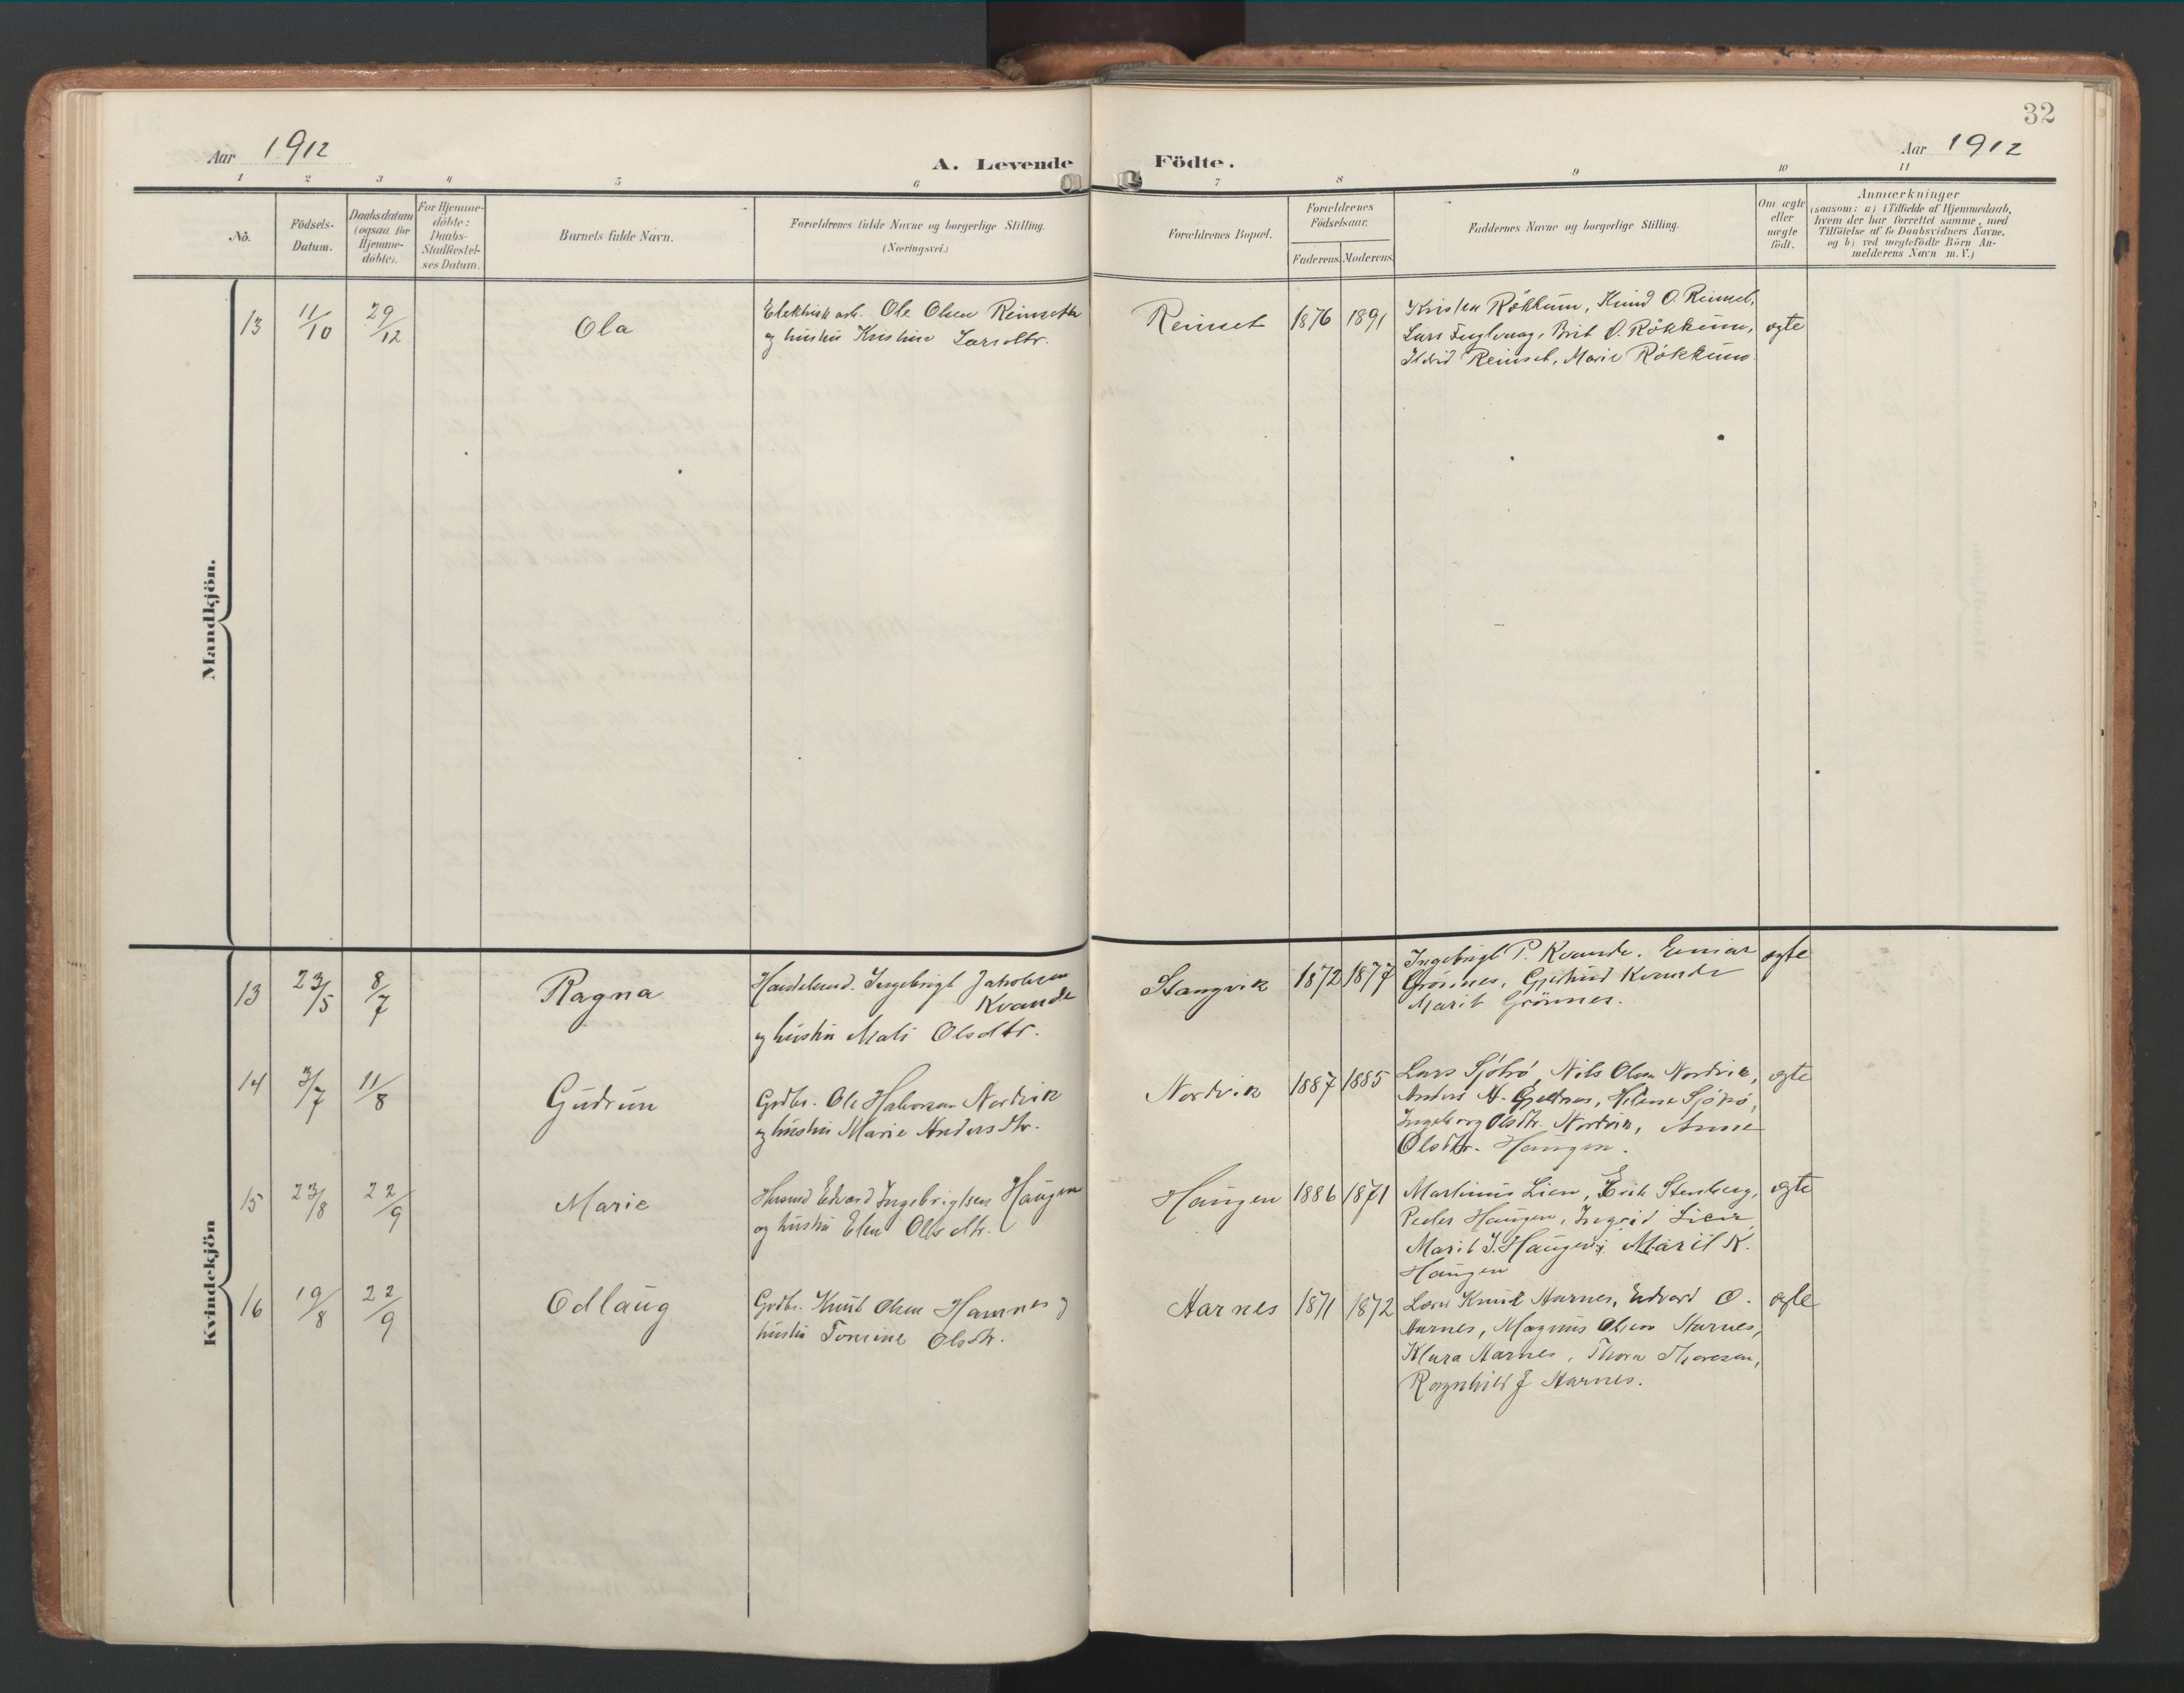 32
Aar 1912
A. Levende Födte.
Aar 1912
1 2 3 4 5 6 7 8 9 10 11
No.
Födsels-
Datum.
Daabsdatum
(ogsaa for
Hjemme-
döbte).
For Hjemme-
döbte:
Daabs-
Stadfæstel-
ses Datum.
Barnets fulde Navn.
Forældrenes fulde Navne og borgerlige Stilling.
(Næringsvei.)
Forældrenes Bopæl.
Forældrenes
Födselsaar.
Faderens. Moderens.
Faddernes Navne og borgerlige Stilling.
Om ægte
eller
uægte
födt.
Anmærkninger
(saasom: a) i Tilfælde af Hjemmedaab,
hvem der har forrettet samme, med
Tilföielse af to Daabsvidners Navne,
og b) ved uægtefödte Börn An-
melderens Navn m. V.)
Mandkjön.
13 11/10 29/12 Ola
Elektrisk arb. Ole Olsen Reinseth
og hustru Kristine Larsdtr.
Reinset 1876 1891
Kristen Rökkum, Knud O. Reinset,
Lars Fuglvaag, Brit O. Rökkum,
Ildrid Reinset, Marie Rökkum.
ægte
Kvindekjön
13 23/5 8/7 Ragna
Handelsmd. Ingebrigt Jakobsen
Kvande
og hustru Mali Olsdtr.
Stangvik 1872 1877
Ingebrigt P. Kvande, Einar
Grönnes, Gjertrud Kvande
Marit Grönnes.
ægte
14 3/7 11/8 Gudrun
Grdbr. Ole Halvorsen Nordvik
og hustru Marie Andersdtr.
Nordvik 1887 1885
Lars Sjöbö, Nils Olsen Nordvik,
Anders H. Gjeldnes, Helene Sjöbö,
Ingeborg Olsdtr. Nordvik, Anne
Olsdtr. Haugen.
ægte
15 23/8 22/9 Marie
Husmd Edvard Ingebrigtsen Haugen
og hustru Elen Olsdtr.
Haugen 1886 1871
Martinus Lien, Erik Stenberg,
Peder Haugen, Ingrid Lien,
Marit I. Haugen, Marit K.
Haugen
ægte
16 19/8 22/9 Odlaug
Grdbr. Knut Olsen Hamnes og
hustru Tomine Olsdtr.
Aarnes 1871 1872
Lars Knut Aarnes, Edvard O.
Aarnes, Magnus Olsen Aarnes,
Klara Aarnes, Thora Thoresen,
Ragnhild J Aarnes.
ægte